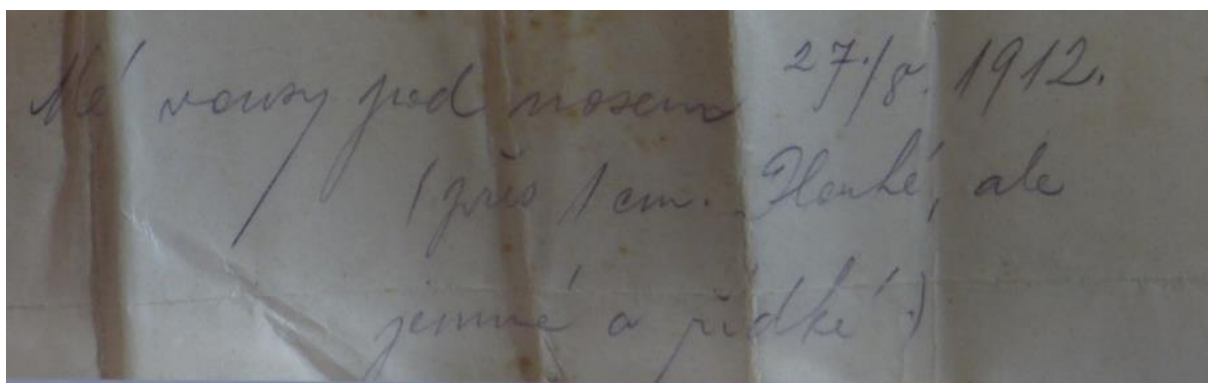 Mé vousy pod nosem 27./8. 1912.
(přes 1 cm. Dlouhé, ale
jemné a řídké.)